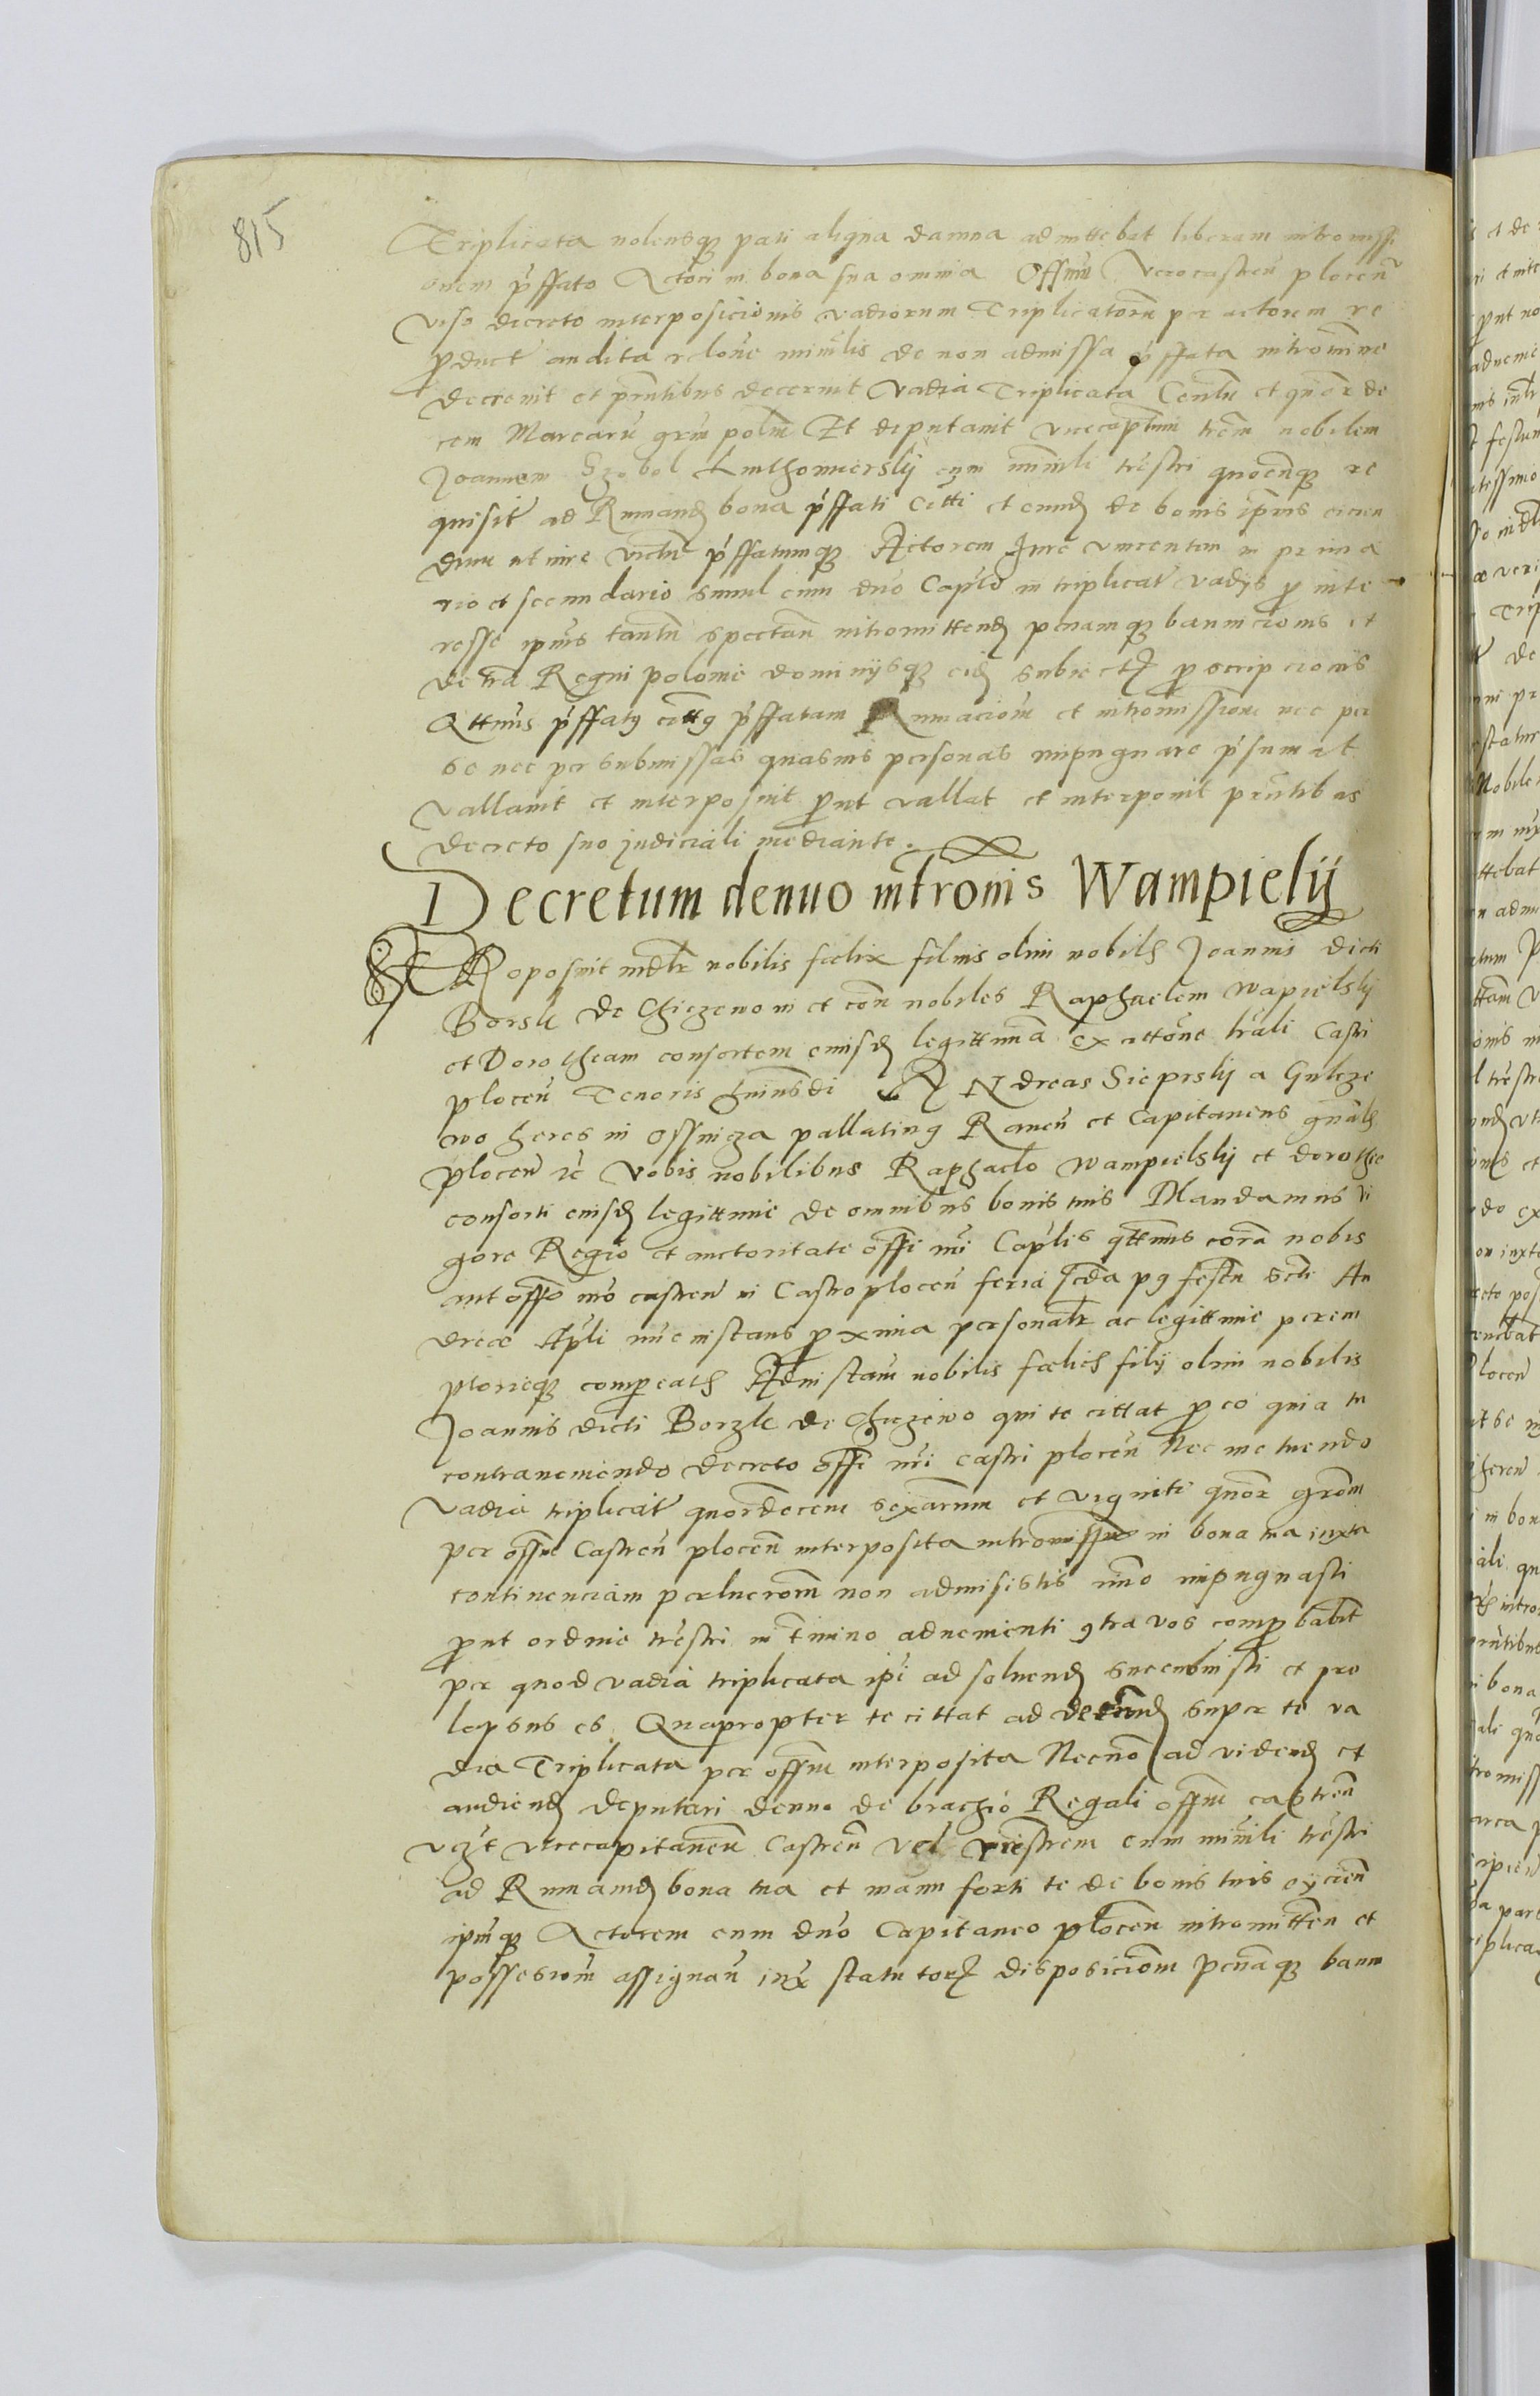 815
Triplicata nolensq3 pati aliqua damna admittebat liberam intromissi
onem p͛ffato Actori in bona sua omnia Offm̄ Vero castren̄ plocen̄
viso decreto interposicionis vadiorum Triplicatorū per actorem re
product audita relōne min͛lis de non admissa p͛ffata intromīne
decrevit et pn̄tibus decernit Vadia Triplicata Centū et quor de
cem Marcarū grm̄ polm̄ Et deputavit vicecaptm̄ trēm nobilem
Joannem Szobol cum min͛li tr͛estri quocūq3 re
quisit ad Rumand bona p͛ffati Citti et eund de bonis ip̄ius eicien
dum ut iure victū p͛ffatumq3 Actorem Jure vincentem in prima
rio et secundario simul cum dn̄o Cap͛lo in triplicat vadys p inte
resse ip̄ius tantū spectan̄ intromittend penamq3 bannicionis et
de tr͛a Regni polonie dominijsq3 eid subiect proscripcionis
Qttenus p͛ffatg cittg p͛ffatam Rumaciom̄ et intromissione nec per
se nec per submissas quasuis personas impugnare p͛sumat
vallavit et interposuit put vallat et interponit pn̄tibus
decreto suo judiciali mediante.
Decretum denuo intromīs Wampielij
PRoposuit nobilis foelix filius olim nobilis Joannis dicti
Borsk de Chczewo in et con͛ nobiles Raphaelem Wapielskij
et Dorotheam consortem eiusd legittimā ex attōne lr͛ali Castri
plocen̄ Tenoris huiusdi ANdreas Sieprskij a Gulcze
wo heres in Ossnicza pallating Raven̄ et Capitaneus gn̄alis
plocen̄ rc̄ Vobis nobilibus Raphaelo Wampielskij et dorothe
consorti eiusd legittime de omnibus bonis tuis Mandamus vi
gore Regio et auctoritate offi n͛ri Cap͛lis qttenus corā nobis
aut offo n͛ro castren̄ in Castro plocen̄ feria scd̄a pg festū scti An
dreae Ap͛li nūc instans pxima personalr ac legittime perem
ptorieq3 compeatis Ad instan̄ nobilis foelicis filij olim nobilis
Joannis dicti Borzk de Chczewo qui te cittat p eo quia tu
contraveniendo decreto offi n͛ri castri plocen̄ Nec metuendo
vadia triplicat quordecem sexarum et viginti quor grōm
per offm̄ Castren̄ plocen̄ interposita intromissione in bona tua iuxta
continenciam perlucrorm̄ non admisistis imo impugnasti
put ordine tr͛estri in tmino advenienti gtra vos compbabit
per quod vadia triplicata ip̄i ad solvend succubuisti et pro
lapsus es. Quapropter te cittat ad super te va
dia Triplicata per offm̄ interposita Necnō ad vidend et
audiend deputari denuo de brachio Regali offm̄ castren̄
vzt Vicecapitaneū Castren̄ Vel cum min͛li tr͛estri
ad Rumand bona tua et manu forti te de bonis tuis eycien̄
ipm̄q3 Actorem cum dn̄o Capitaneo plocen̄ intromitten̄ et
possessiom̄ assignan̄ iux statutor disposiciom̄ penāq3 bann